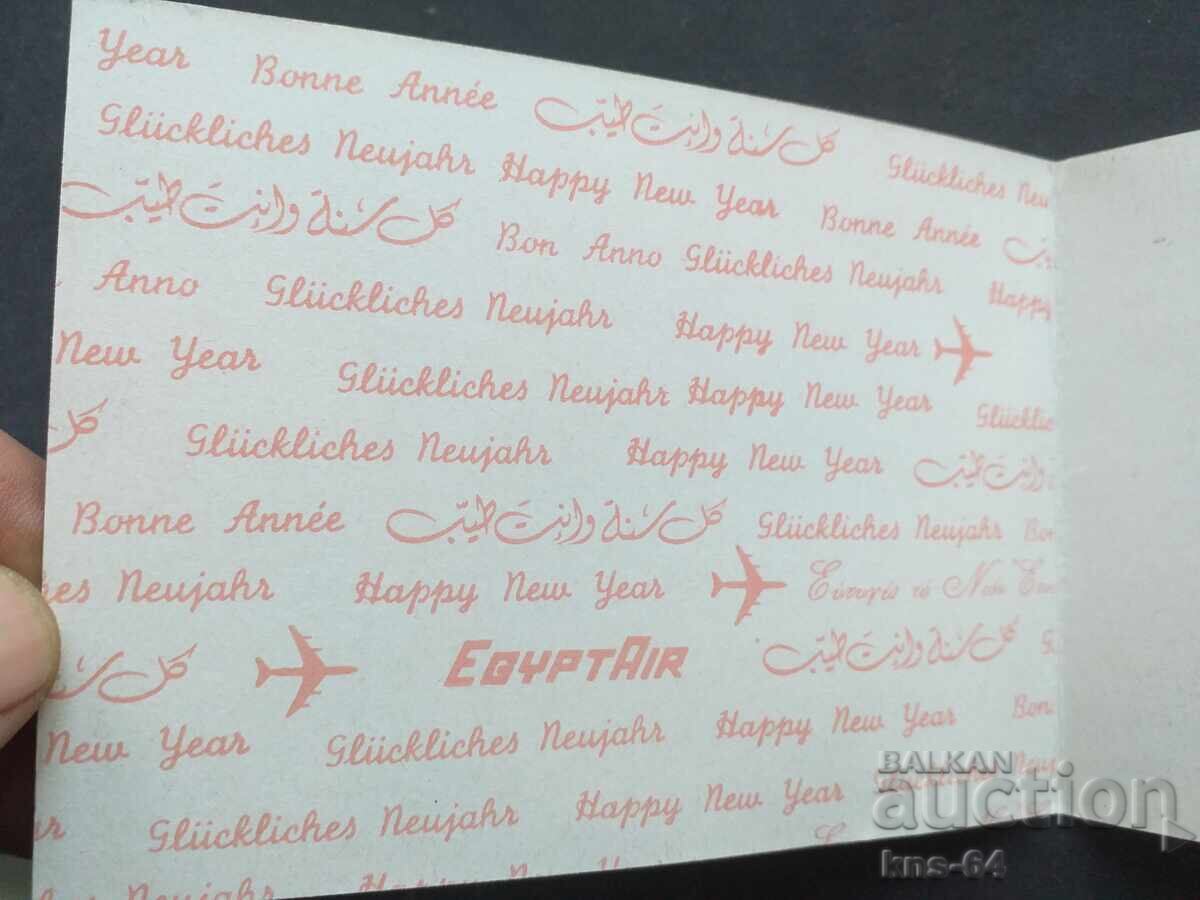 Year Bonne Année كل سنة وانت طيب Glückliches
Glückliches Neujahr Happy New Year Bonne Année
كل سنة وانت طيب Bon Anno Glückliches Neujahr Happy
Anno Glückliches Neujahr Happy New Year
New Year Glückliches Neujahr Happy New Year
كل Glückliches Neujahr Happy New Year وانت طيب
Bonne Année كل سنة وانت طيب Glückliches Neujahr
Neujahr Happy New Year
كل EGYPTAIR كل سنة وانت طيب
New Year Glückliches Neujahr Happy New Year
Glückliches Neujahr Happy New Year
BALKAN
auction
kns-64